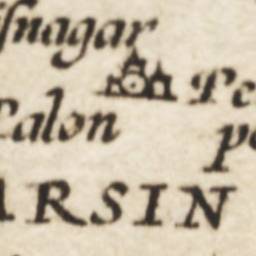 ſnagar
Pe
Palon
po
ARSIN